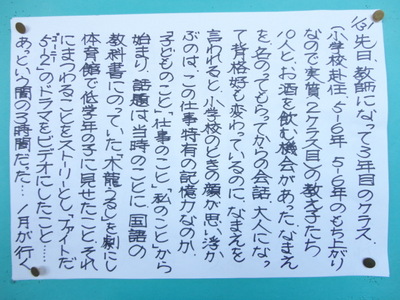 先日、教師になって3年目のクラス、
(小学校赴任、5-6年 5-6年のもち上がり
なので実質、2クラス目)の教え子たち
10人と、お酒を飲む機会があった。なまえ
を、名のってもらってからの会話、大人になっ
て背格好も変わっているのに、なまえを
言われると、小学校のときの顔が思い浮か
ぶのは、この仕事特有の記憶力なのか、
「子どものこと」「仕事のこと」「私のこと」から
始まり、話題は当時のことに、国語の
教科書にのっていた「木龍うるし」を劇にし
体育館で低学年の子に見せたこと、それ
にまつわることをストーリーとし、「ファイトだ
5-2」のドラマをビデオにしたこと・・・・
あっという間の3時間だった・・・/月が行く